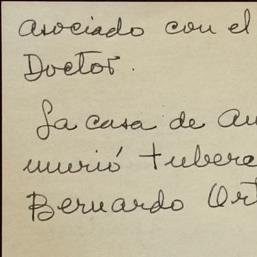 asociado con el
Doctor.
La casa de Au
murió tuberc
Bernardo Ort